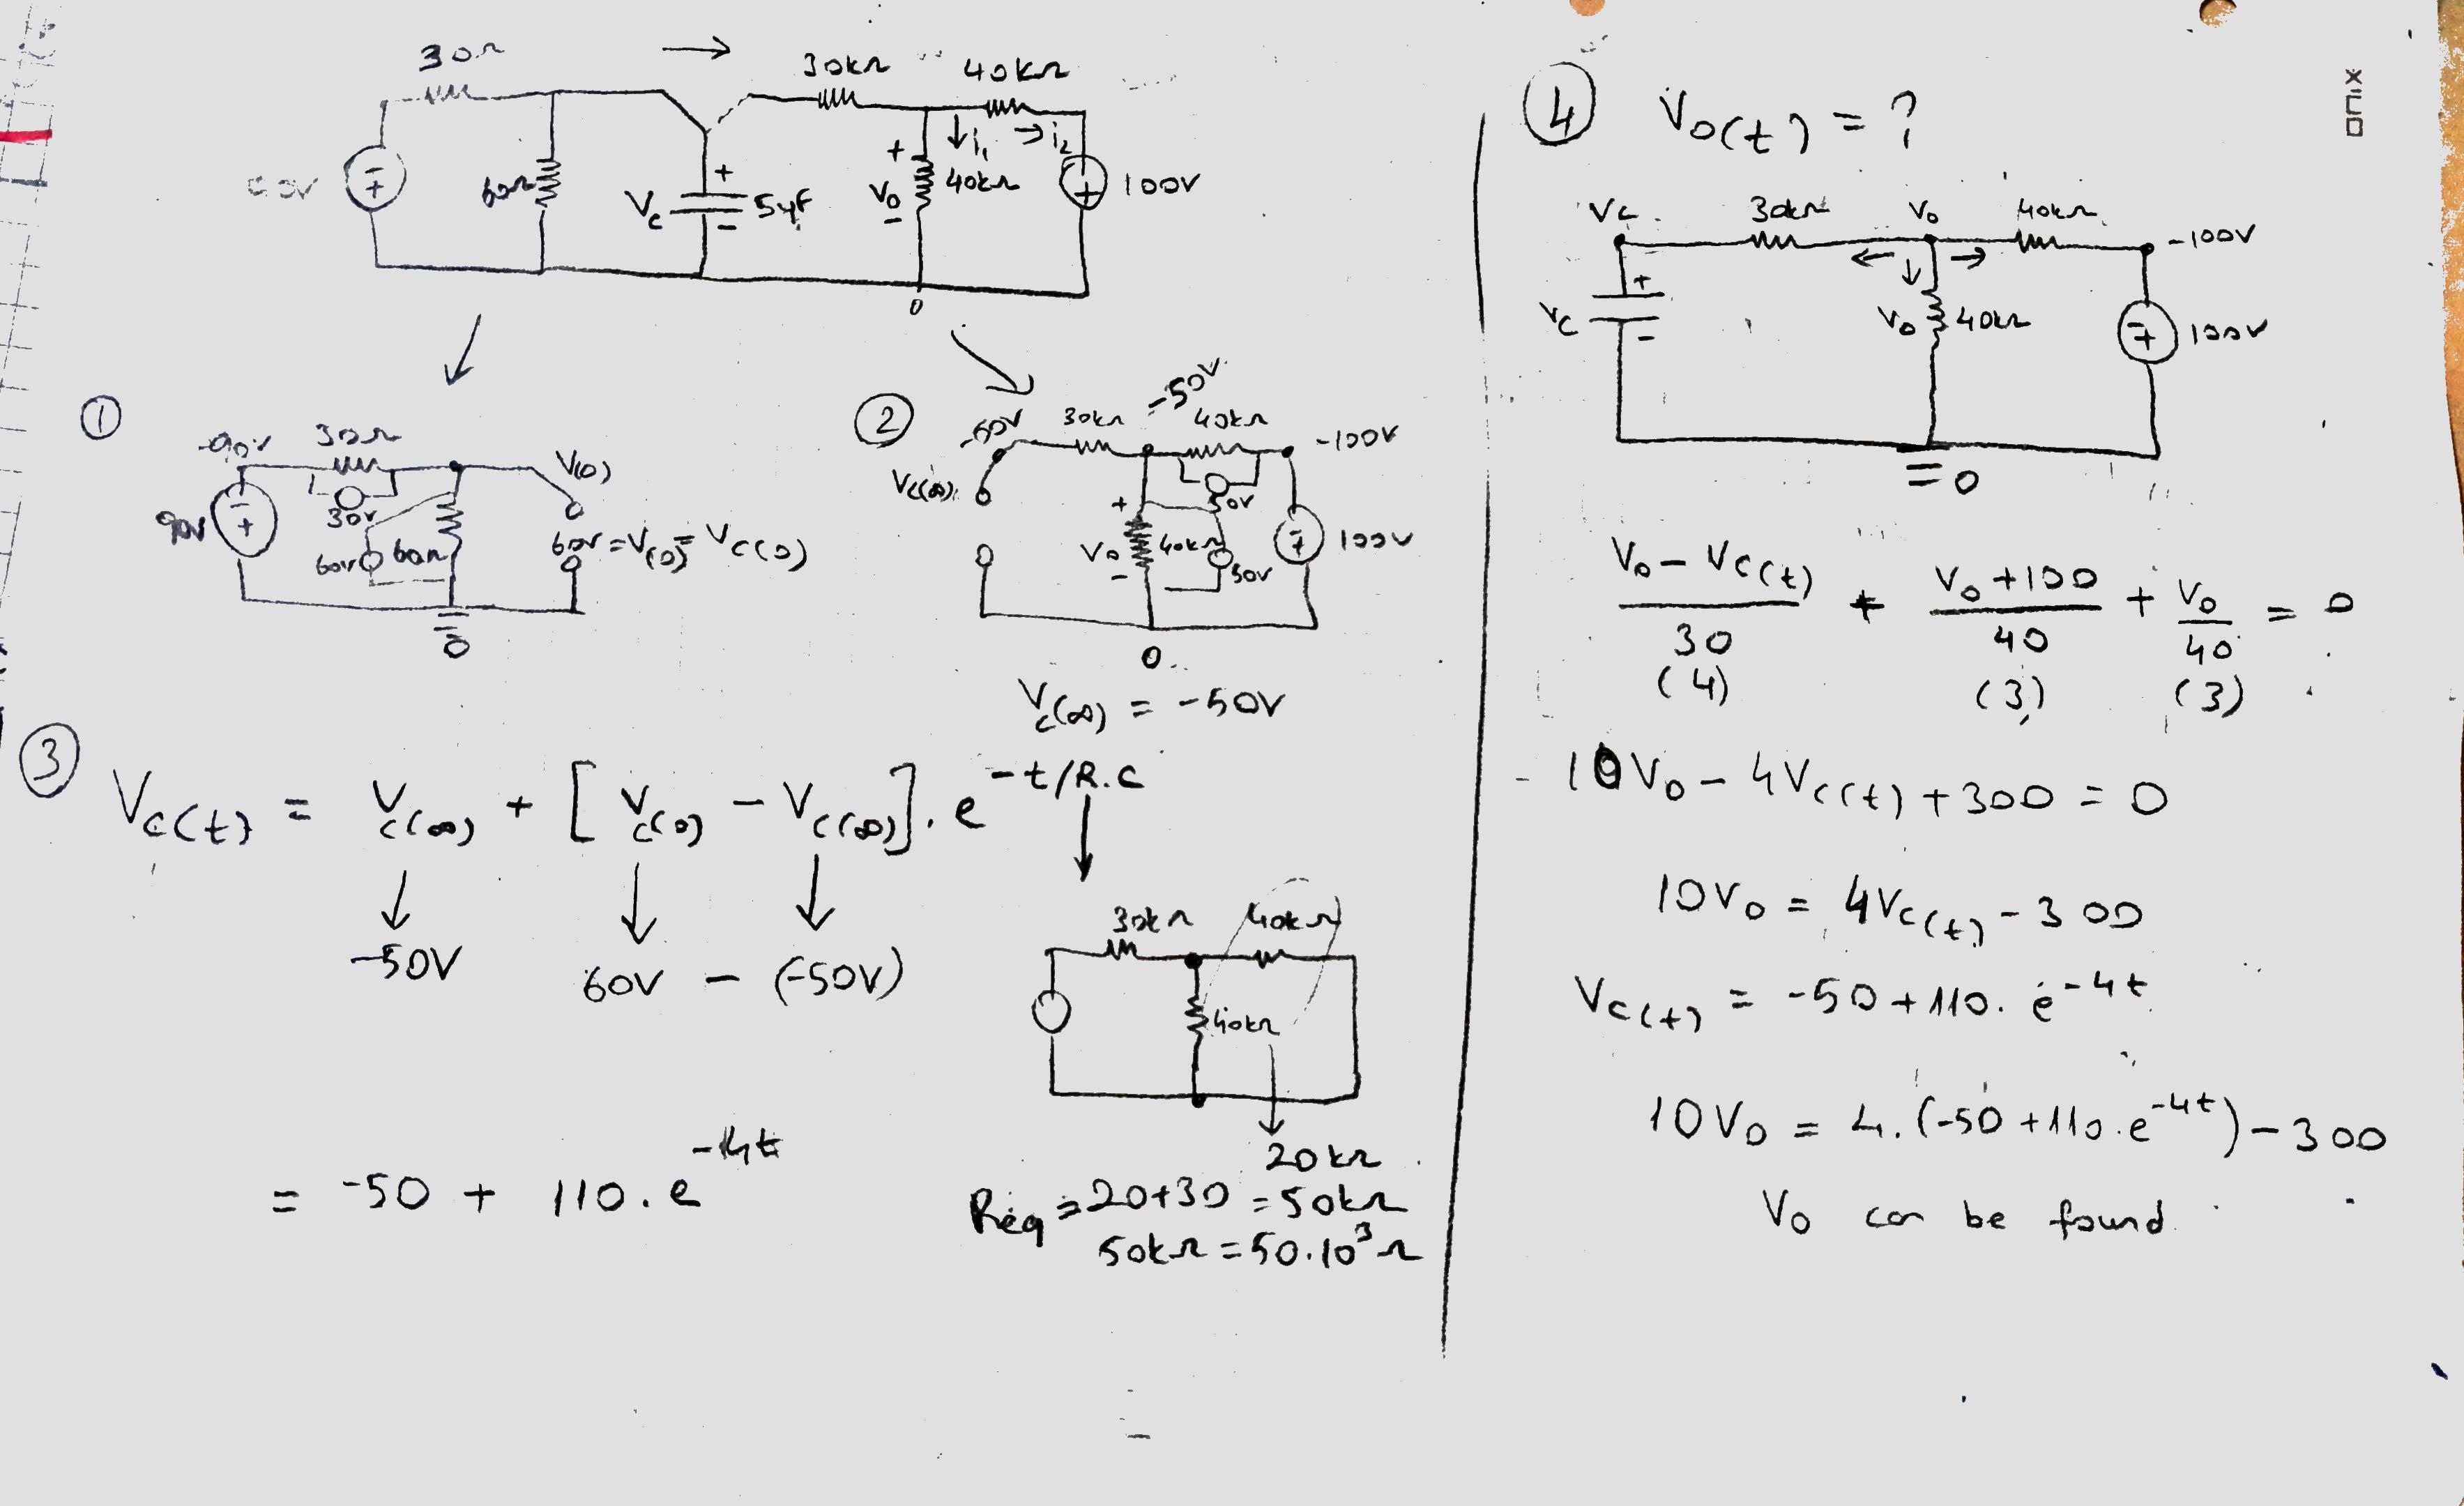 30Ω → 30kΩ 40kΩ
60Ω Vc + - 5μF + V0 - 40kΩ i1 i2 100V
0
①
-90V 30Ω V(0)
90V 30V
60V 60Ω 60V = V(0) = Vc(0)
0
②
-60V 30kΩ -50V 40kΩ -100V
Vc(∞) 50V
+ V0 - 40kΩ 50V 100V
0
Vc(∞) = -50V
③ Vc(t) = Vc(∞) + [Vc(0) - Vc(∞)] . e^-t/R.C
-50V 60V - (-50V)
30kΩ 40kΩ
40kΩ
20kΩ
= -50 + 110 . e^-4t
Req = 20+30 = 50kΩ
50kΩ = 50.10³Ω
④ V0(t) = ?
Vc 30kΩ V0 40kΩ -100V
Vc + - V0 40kΩ 100V
0
V0 - Vc(t) / 30 + V0 + 100 / 40 + V0 / 40 = 0
(4) (3) (3)
10V0 - 4Vc(t) + 300 = 0
10V0 = 4Vc(t) - 300
Vc(t) = -50 + 110. e^-4t
10V0 = 4.(-50 + 110.e^-4t) - 300
V0 can be found